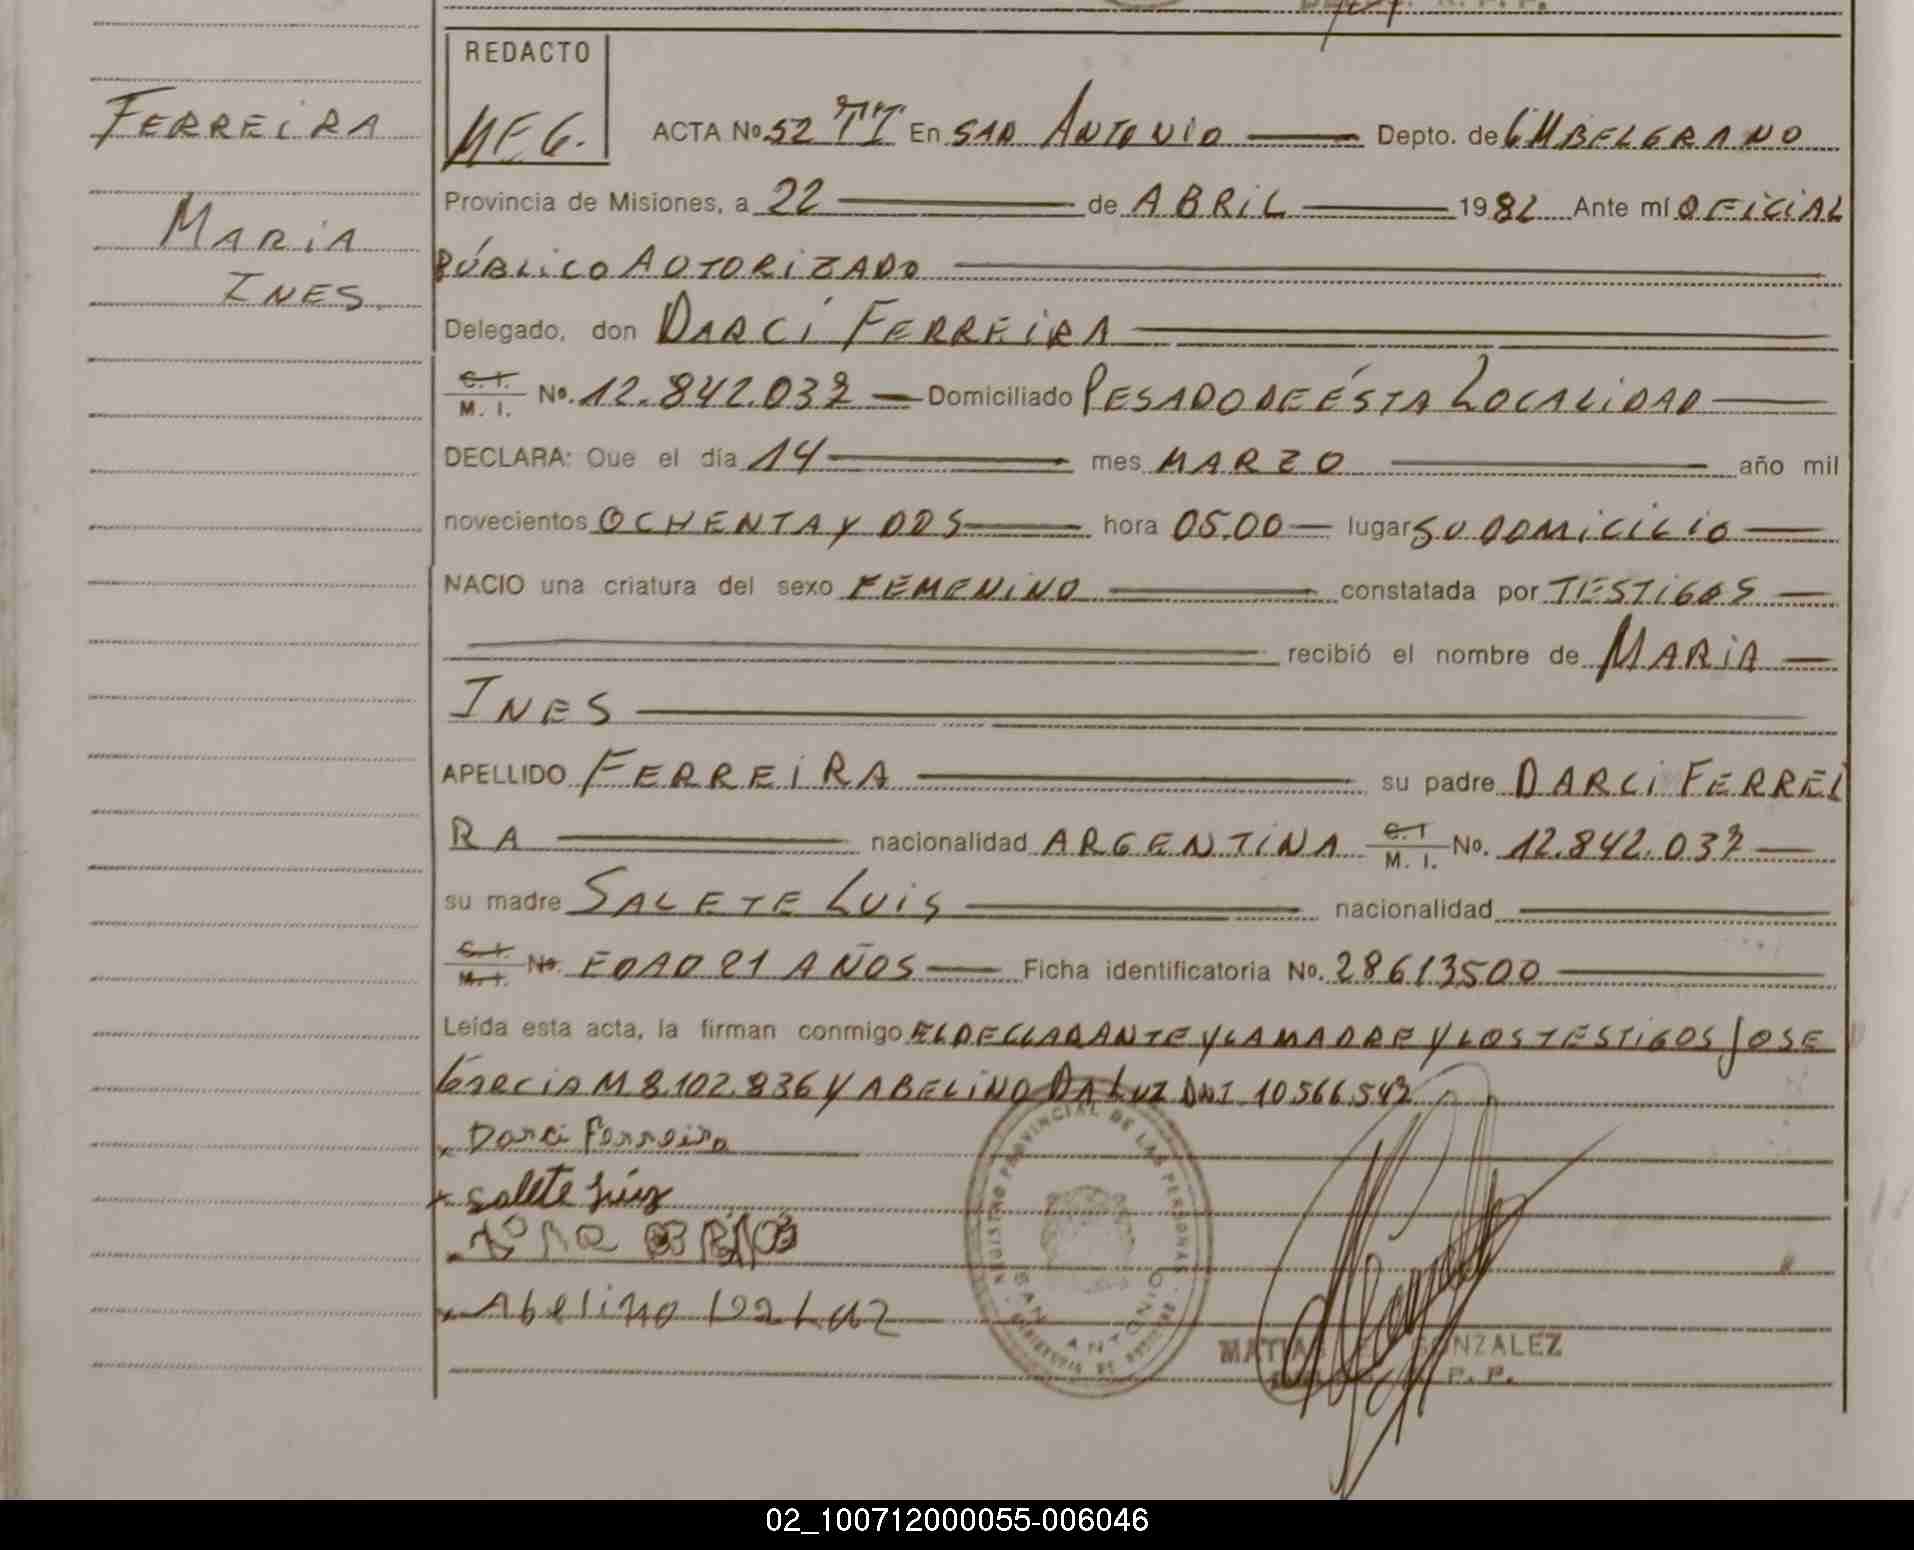 REDACTO
MEG.
FERREIRA
MARIA
INES
ACTA No 52 TII En SAN ANTONIO Depto. de GMBELGRANO
Provincia de Misiones, a 22 de ABRIL 1982 Ante mí OFICIAL
PÚBLICO AUTORIZADO
Delegado, don DARCI FERREIRA
C. I.
M. I. No. 12.842.032 Domiciliado PESADO DE ÉSTA LOCALIDAD
DECLARA: Que el día 14 mes MARZO año mil
novecientos OCHENTA Y DOS hora 05.00 lugar SU DOMICILIO
NACIO una criatura del sexo FEMENINO constatada por TESTIGOS
recibió el nombre de MARIA
INES
APELLIDO FERREIRA su padre DARCI FERREI
RA nacionalidad ARGENTINA C. I M. I. No. 12.842.032
su madre SALETE LUIS nacionalidad
C. I. M. I. No. EDAD 21 AÑOS Ficha identificatoria No. 28613500
Leída esta acta, la firman conmigo EL DECLARANTE Y LA MADRE Y LOS TESTIGOS JOSE
GARCIA M 8.102.836 Y ABELINO DA LUZ DNI 10.566.542
x Darci Ferreira
x Salete Luiz
x Abelino Da Luz
REGISTRO PROVINCIAL DE LAS PERSONAS
SAN ANTONIO
MATIAS E. GONZALEZ
P. P.
02_100712000055-006046